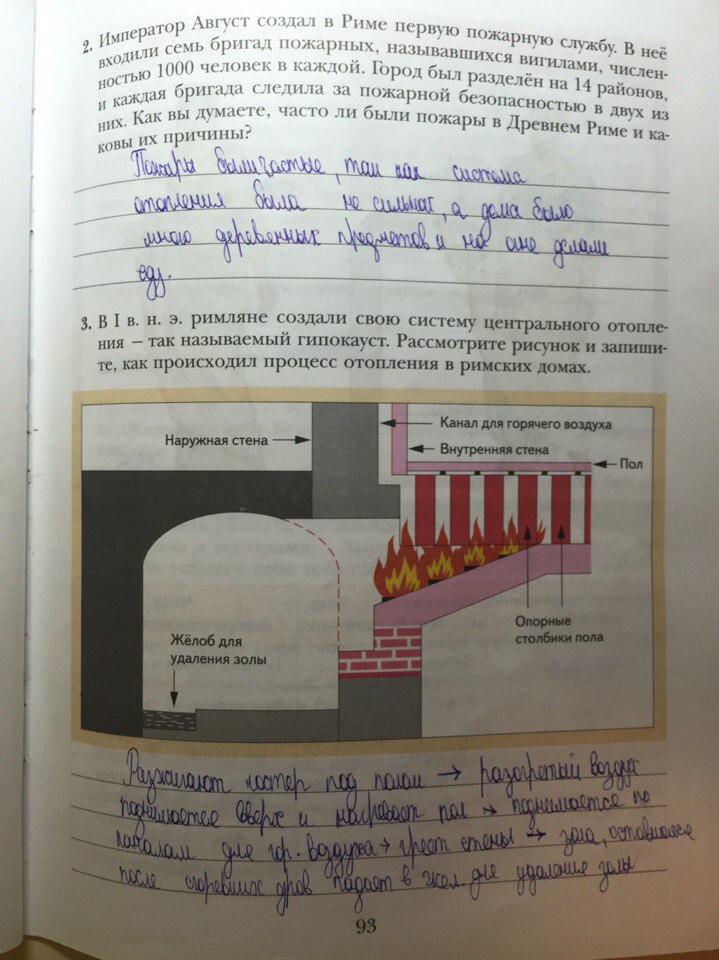 2. Император Август создал в Риме первую пожарную службу. В неё
входили семь бригад пожарных, называвшихся вигилами, числен-
ностью 1000 человек в каждой. Город был разделён на 14 районов,
и каждая бригада следила за пожарной безопасностью в двух из
них. Как вы думаете, часто ли были пожары в Древнем Риме и ка-
ковы их причины?
Пожары были частые, так как система
отопления была не сильная, а дома было
много деревенных предметов и на огне делали
еду.
3. В I в. н. э. римляне создали свою систему центрального отопле-
ния – так называемый гипокауст. Рассмотрите рисунок и запиши-
те, как происходил процесс отопления в римских домах.
Наружная стена
Канал для горячего воздуха
Внутренняя стена
Пол
Опорные
столбики пола
Жёлоб для
удаления золы
Разжигают костер под полом → разогретый воздух
поднимается вверх и нагревает пол → поднимается по
каналам для гор. воздуха → греет стены → зола, оставшаяся
после сгоревших дров падает в жел. для удаления золы
93